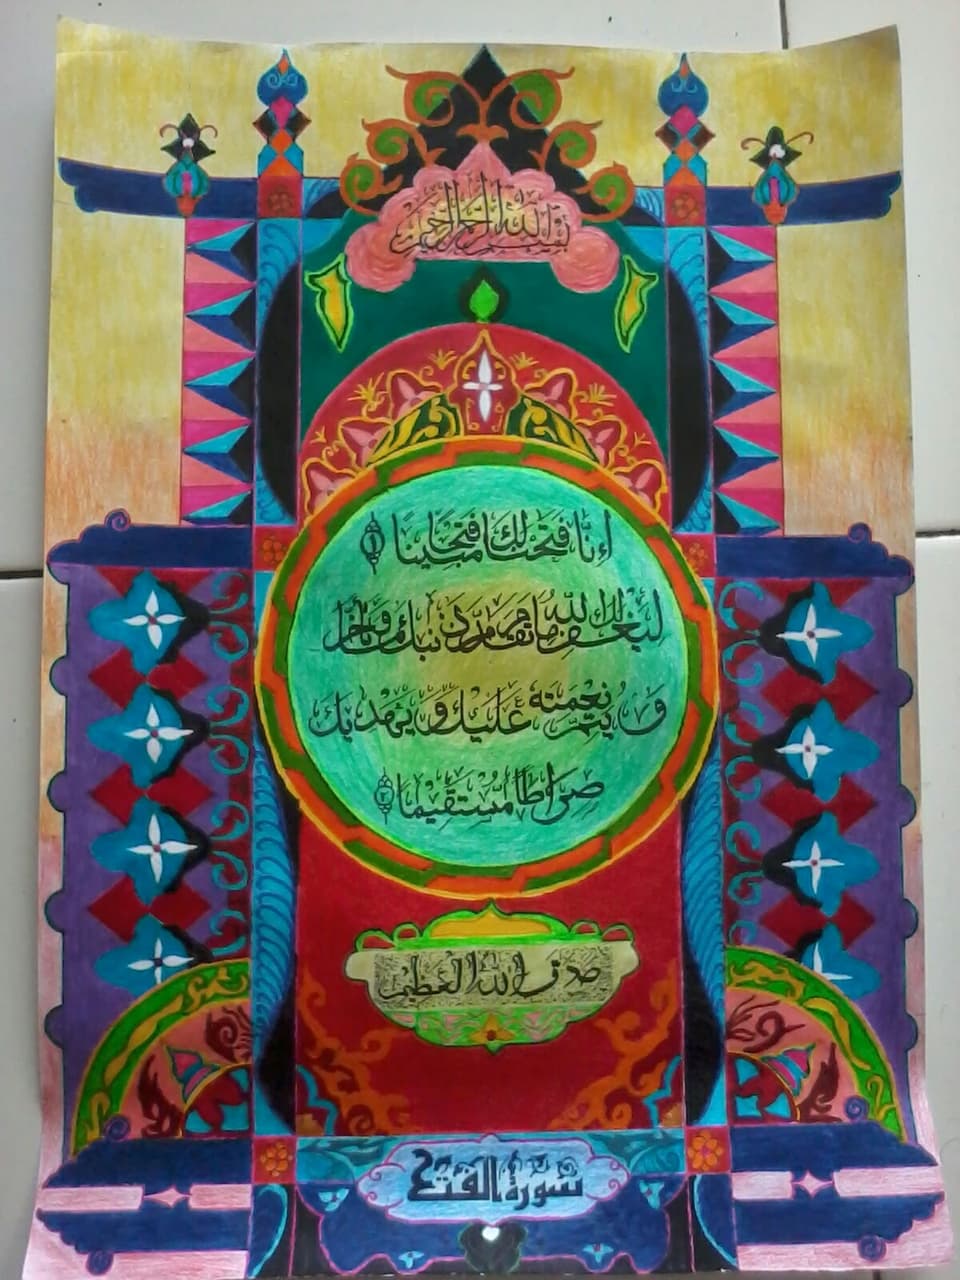 بِسْمِ اللهِ الرَّحْمٰنِ الرَّحِيْمِ
إِنَّا فَتَحْنَا لَكَ فَتْحًا مُّبِينًا ١
لِيَغْفِرَ لَكَ اللهُ مَا تَقَدَّمَ مِنْ ذَنْبِكَ وَمَا تَأَخَّرَ
وَيُتِمَّ نِعْمَتَهُ عَلَيْكَ وَيَهْدِيَكَ
صِرَاطًا مُّسْتَقِيمًا ٢
صدق الله العظيم
سُوْرَةُ الفتح